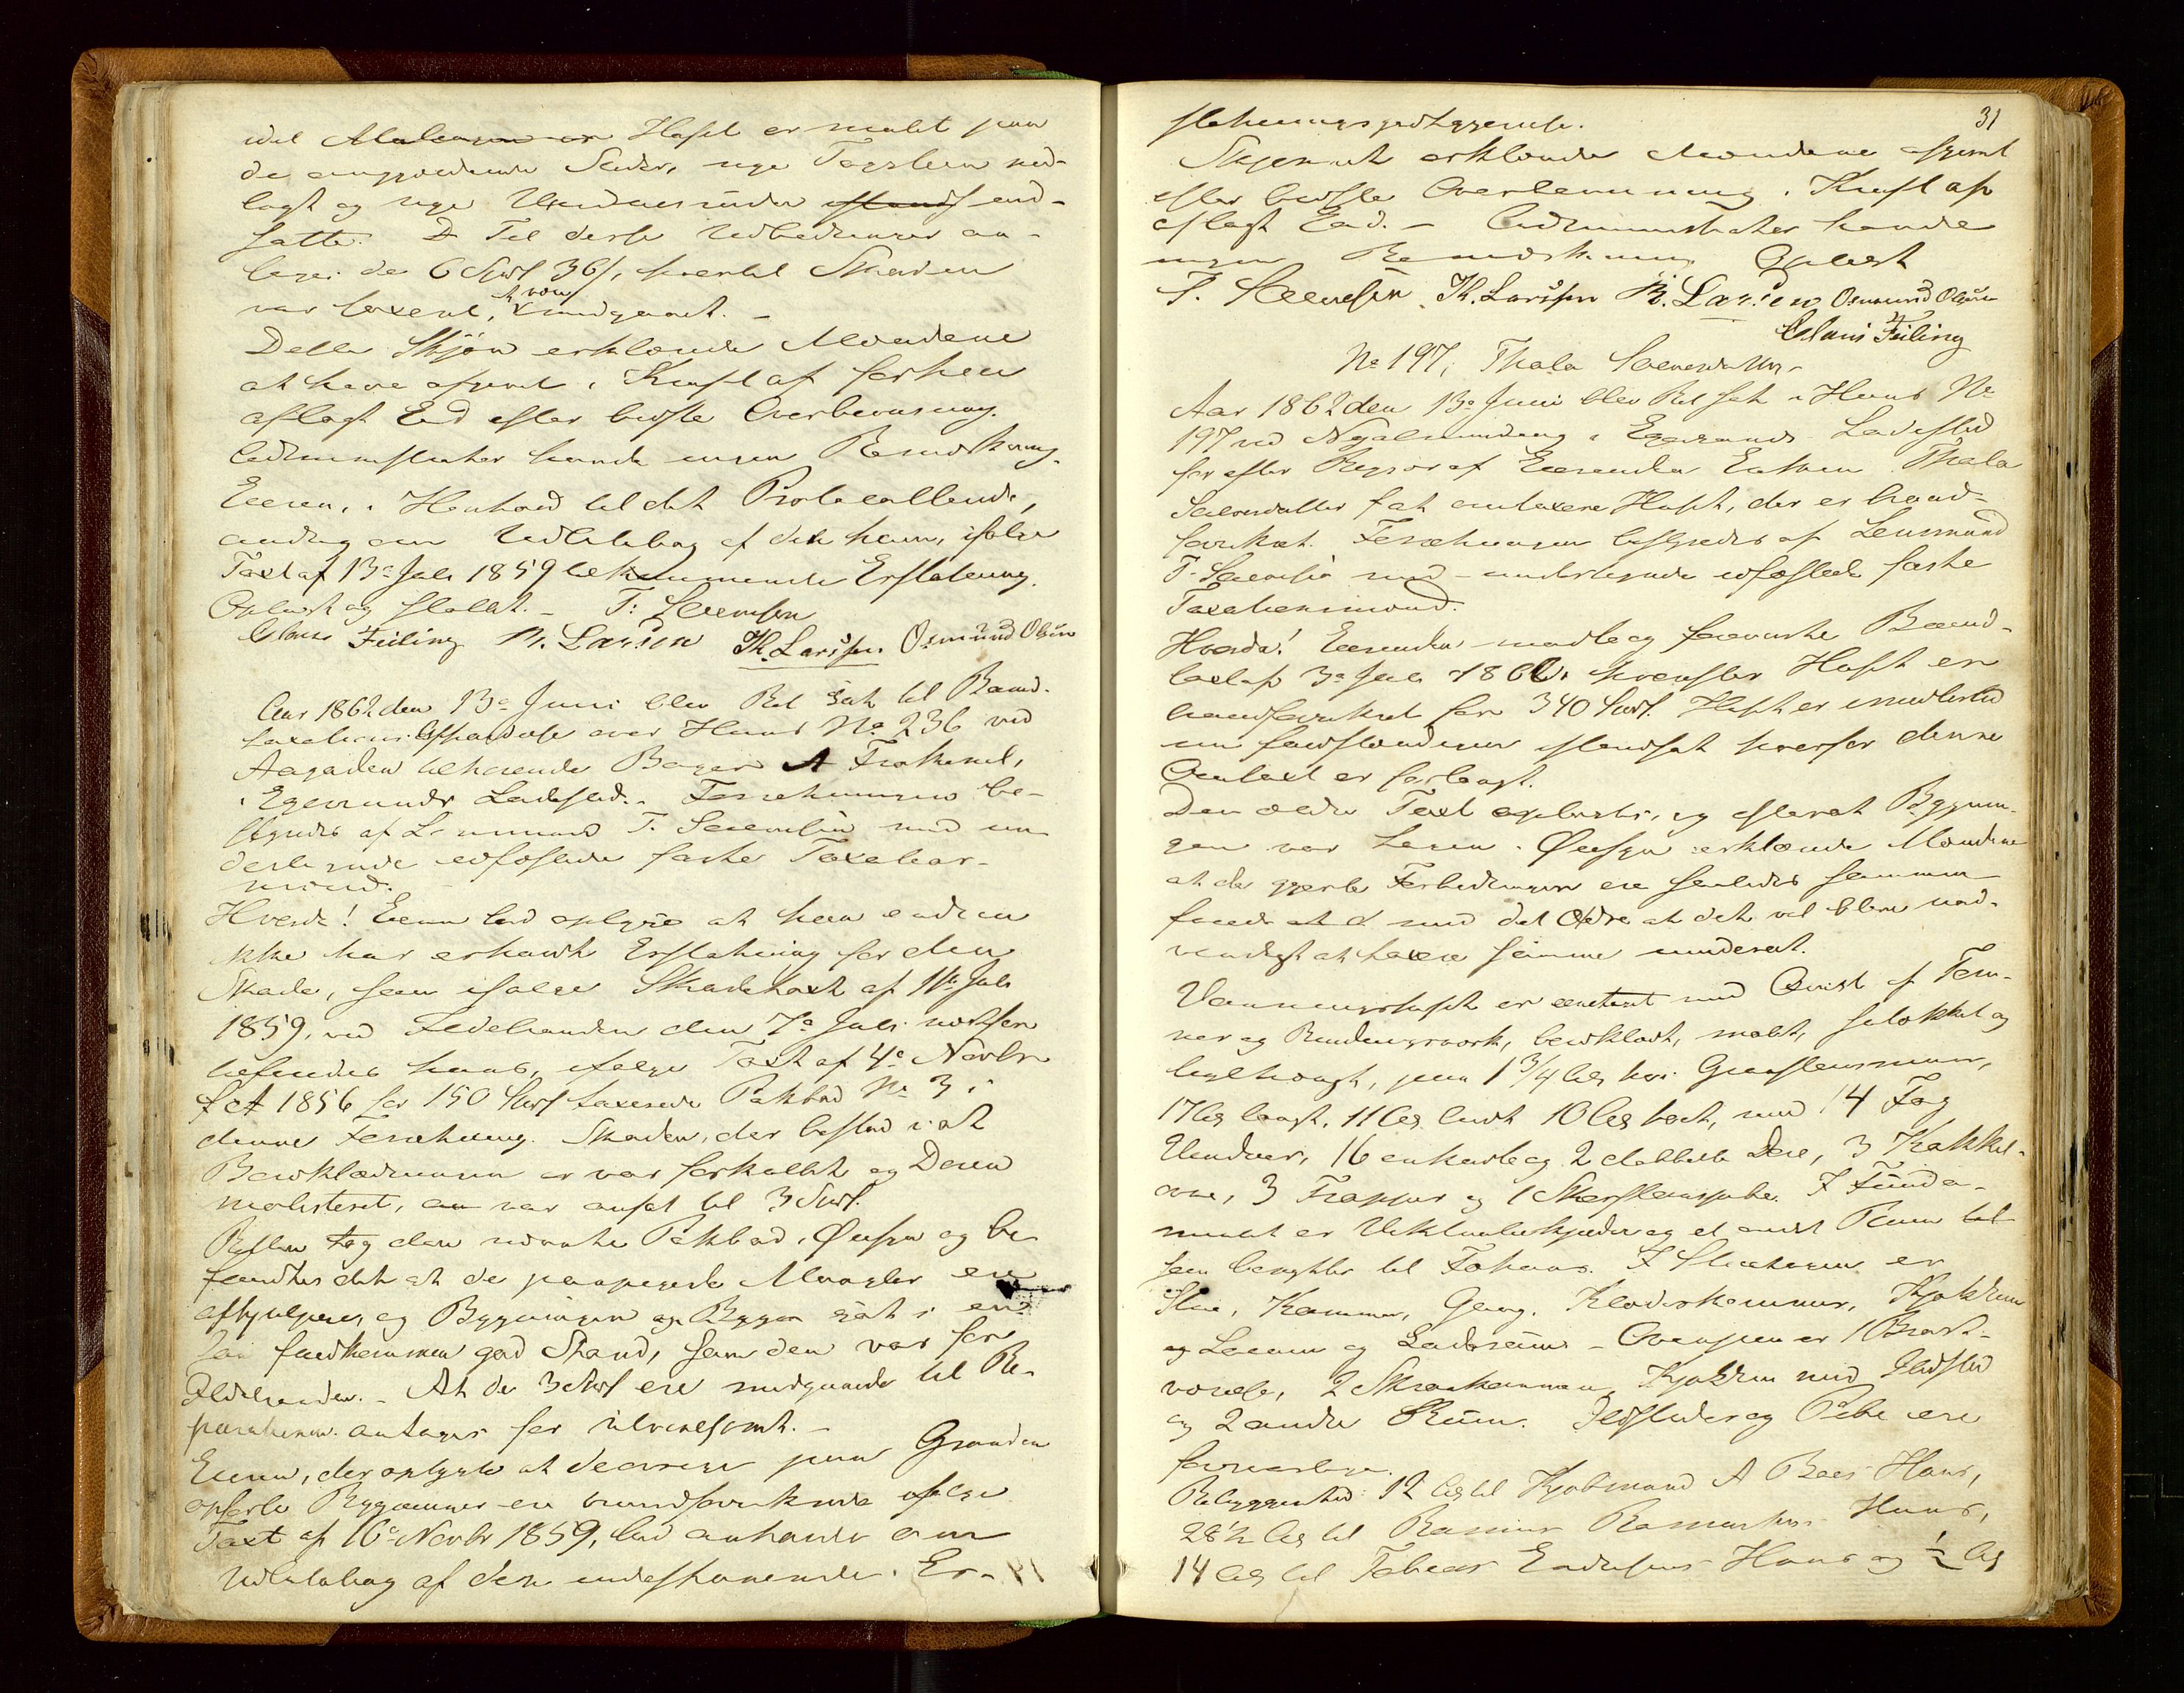 idet Malingen er Huset er malet paa
de angjældende Steder, nye Tagsteen ned-
lagt og nye Vinduesruder istandf ind-
satte. Til disse Udbedringer an-
tages de 6 Spd 36 s, hvortil Skaden
var taxeret, at være medgaaet. -
Dette Skjøn erklærede Mændene
at have afgivet i Kraft af forhen
aflagt Eed efter bedste Overbeviisning.
Administrator havde ingen Bemærkning.
Eieren, i Henhold til det Protocollerede,
androg om Udbetaling af den ham, ifølge
Taxt af 13de Juli 1859 tilkommende Erstatning.
Oplæst og sluttet. - T. Svendsen
Claus Feiling R. Larsen Th. Larsen Osmund Olsen
Aar 1862 den 13de Juni blev Ret sat til Brand-
taxations Afholdelse over Huus No 236 ved
Aagaden tilhørende Bager A
i Egersunds Ladested. Forretningen be-
styredes af Lensmand T. Svendsen med un-
dertegnede edfæstede faste Taxations-
mænd.
Hvorda! Eieren lod oplyse at han endnu
ikke har erholdt Erstatning for den
Skade, som ifølge Skadetaxt af 11te Juli
1859, ved Ildebranden den 7de Juli næstfor
tilføiedes hans, ifølge Taxt af 4de Novbr
1856 for 150 Spd taxerede Pakbod No 3 i
denne Forretning. Skaden, der bestod i at
Bordklædningen var forkullet og Døren
molesteret, var ansat til 3 Spd.
Retten tog den nævnte Pakbod i Øiesyn og be-
fandtes det at de paapegede Mangler ere
afhjulpne, og Bygningen sat i en
saa fuldkommen god Stand, som den var før
Ildebranden. - At de 3 Spd ere medgaaede til Re-
parationen antages for utvivlsomt. -
Eieren, der oplyste at de øvrige paa Grunden
opførte Bygninger ere brandforsikrede ifølge
Taxt af 16de Novbr 1859, lod anholde om
Udbetaling af den indestaaende Er-
31
statningsgodtgjørelse.
Skjønnet erklærede Mændene afgivet
efter bedste Overbeviisning i Kraft af
aflagt Eed. - Administrator havde
ingen Bemærkning. Oplæst
T. Svendsen. Th. Larsen R. Larsen Osmund Olsen
Claus Feiling
No 197, Thala Sørensdatter -
Aar 1862 den 13de Juni blev Ret sat i Huus No
197 ved Nygaden i Egersunds Ladested
for efter Begjær af Eierinden Enken Thala
Sørensdatter at omtaxere Huset, der er brand-
forsikret. Forretningen bestyredes af Lensmand
T. Svendsen med undertegnede edfæstede faste
Taxationsmænd.
Hvorda! Eierinden modtog foreviste Brand-
taxt af 3de Juli 1860, hvorefter Huset er
brandforsikret for 340 Spd. Huset er imidlertid
nu fuldstændigen istandsat hvorfor denne
Omtaxt er forlangt.
Den ældre Taxt oplæstes, og efterat Bygnin-
gen var tagen i Øiesyn erklærede Mændene
at de gjorte Forbedringer ere saaledes sammen-
føiede med det Ældre at det vil blive nød-
vendigt at taxere samme underet.
Vaaningshuset er opført med Qvist af Tøm-
mer og Bindingsværk, bordklædt, malet, og
teglhængt, paa 1 3/4 Al. høi Graasteensmuur,
17 Al. langt, 11 Al. bredt 10 Al. høit, med 14 Fag
Vinduer, 16 enkelte og 2 dobbelte Døre, 3 Kakkel-
ovne, 3 Trapper og 1 Skorsteenspibe. I Funda-
mentet er Victualiekjelder og et andet Rum
som benyttes til Fæhuus. I 1ste Etage er
Stue, Kammer, Gang, Klædeskammer, Kjøkken
og Ovenpaa er 1 Qvist-
værelse, 2 Skraakammere, Kjøkken med Ildsted
og 2 andre Rum. Ildsteder og Pibe ere
forsvarlige.
Bebyggethed 12 Al. til Kjøbmand A Huus,
28 1/2 Al. til Rasmus Rasmussens Huus,
14 Al. til Tobias Huus og 1/2 Al.